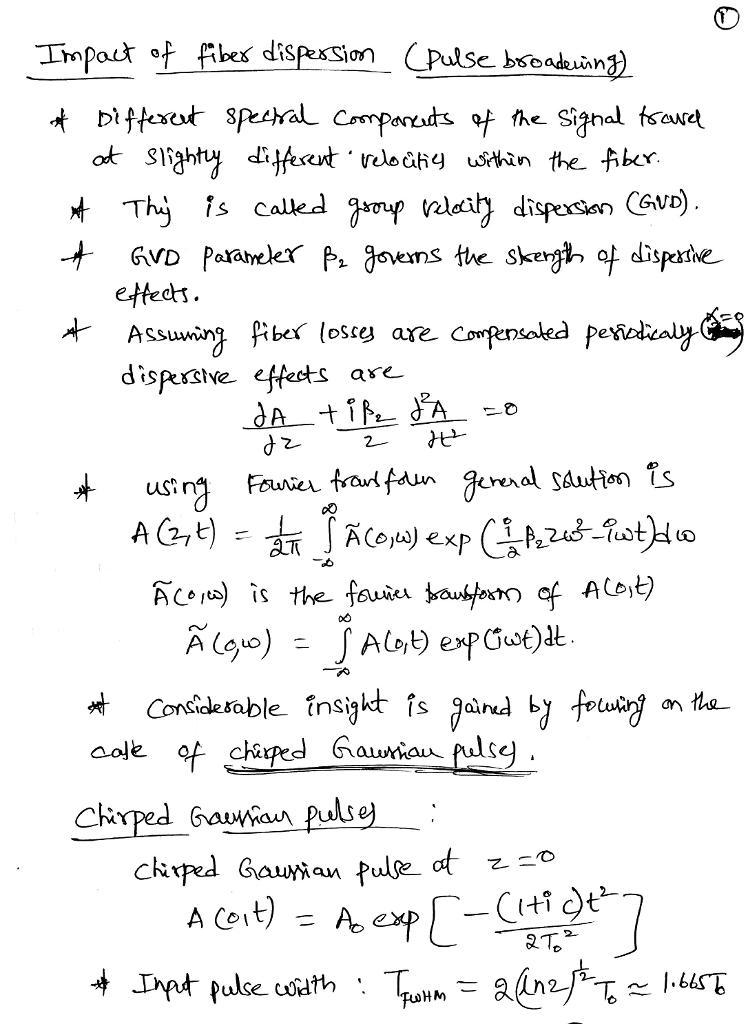 ①
Impact of fiber dispersion (Pulse broadening)
* Different spectral components of the signal travel
at slightly different velocities within the fiber.
* This is called group velocity dispersion (GVD).
* GVD parameter β₂ governs the strength of dispersive
effects.
* Assuming fiber losses are compensated periodicaly (α=0)
dispersive effects are
∂A/∂z + iβ₂/2 ∂²A/∂t² = 0
* using Fourier transform general solution is
A(z,t) = 1/2π ∫_{-∞}^{∞} Ã(0,ω) exp(i/2 β₂zω² - iωt)dω
Ã(0,ω) is the fourier transform of A(0,t)
Ã(0,ω) = ∫_{-∞}^{∞} A(0,t) exp(iωt)dt.
* Considerable insight is gained by focusing on the
case of chirped Gaussian pulses.
Chirped Gaussian pulses :
Chirped Gaussian pulse at z=0
A(0,t) = A₀ exp[-(1+ic)t²/2T₀²]
* Input pulse width : T_FWHM = 2(ln2)^{1/2} T₀ ≈ 1.665T₀